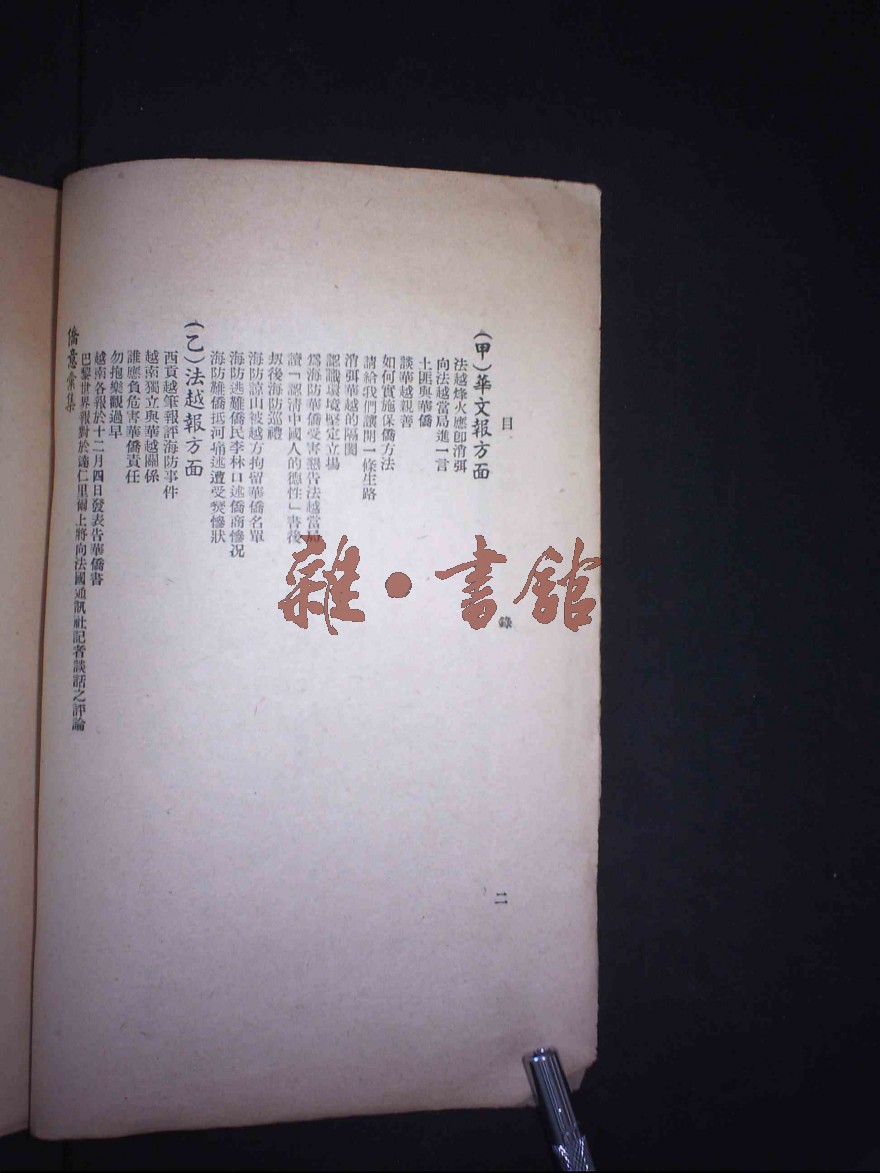 目錄
二
(甲)華文報方面
法越烽火應卽消弭
向法越當局進一言
土匪與華僑
談華越親善
如何實施保僑方法
請給我們讓開一條生路
消弭華越的隔閡
認識環境堅定立場
爲海防華僑受害懇告法越當局
讀「認清中國人的德性」書後
刼後海防巡禮
海防諒山被越方拘留華僑名單
海防逃難僑民李林口述僑商慘况
海防難僑抵河痛述遭受慘狀
(乙)法越報方面
西貢越筆報評海防事件
越南獨立與華越關係
誰應負危害華僑責任
勿抱樂觀過早
越南各報於十二月四日發表告華僑書
巴黎世界報對於達仁里爾上將向法國通訊社記者談話之評論
僑意彙集
雜·書館